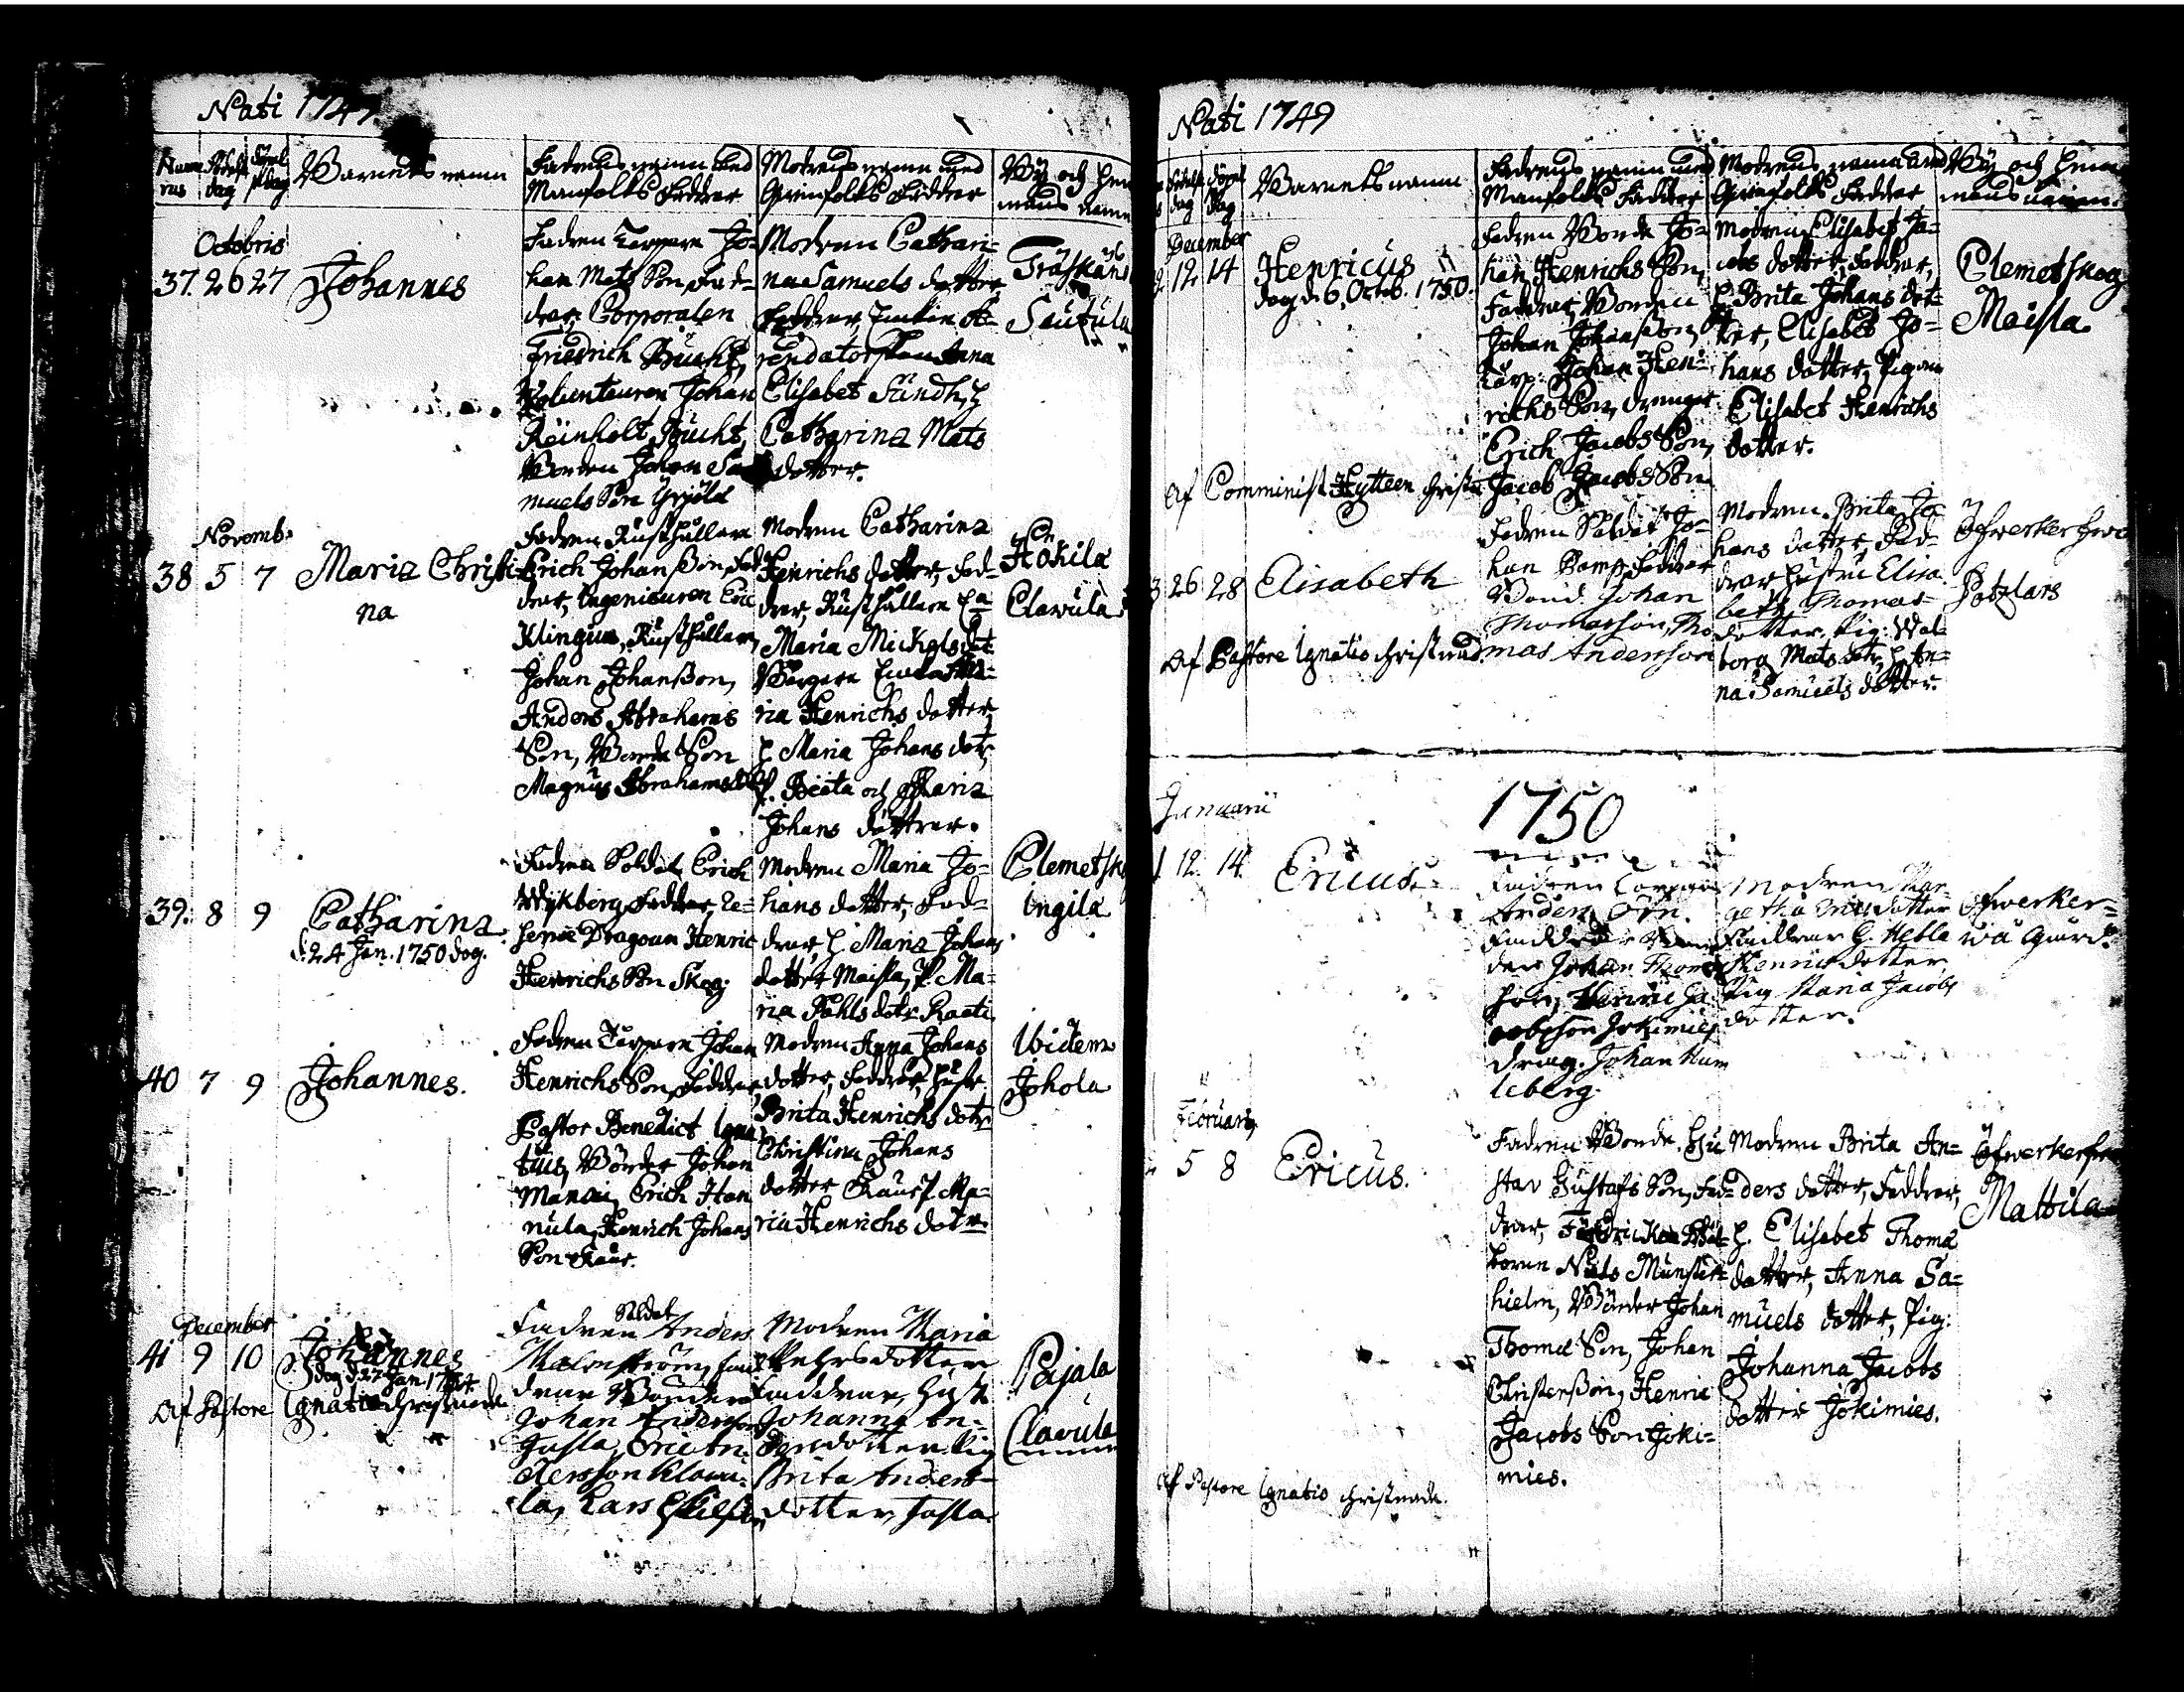 Nati 1749
Barnets namn
Fadrens namn med
Manfolks Faddrar
Modrens namn med
Qvinfolks Faddrar
By och Hem
mans namn
Octobris
37. 26 27 Johannes
Fadren Torpare Jo-
han Mats Son, Fad-
drar, Corporalen
Friedrich Bucht,
Volunteuren Johan
Reinholt Bucht,
Bonden Johan Sa
muels Son
Modren Cathari-
na Samuels dotter
Faddrar, Enkan Ar-
rendatorskan Anna
Elisabet Sundh, H
Catharina Mats
dotter.
Träskänd
Seutula
Novemb.
38 5 7 Maria Christi-
na
Fadren Rusthållare
Erich Johansson, Fad
drar, Ingenieuren Eric
Klingius, Rusthållare,
Johan Johansson,
Anders Abrahams
Son, Bonde Son
Magnus Abrahams
Modren Catharina
Henrichs dotter, Fad-
drar, Rusthållare
Maria Mickels dot
Borgare Enkan Ma-
ria Henrichs dotter,
H Maria Johans dotr,
P. Beata och Maria
Johans döttrar.
Hokila
Clavula
39. 8 9 Catharina
d. 24 Jan. 1750 dog.
Fadren Soldat Erich
Wykberg, Faddrar,
Dragoun Henric
Henrichs Son Skog.
Modren Maria Jo-
hans dotter, Fad-
drar, H. Maria Johans
dotter Maisla, P. Ma-
ria Påhls dotr
Clemetsko
Ingila
40 7 9 Johannes.
Fadren Torpare Johan
Henrichs Son, Faddrar,
Pastor Benedict Igna
tius, Bönder Johan
Erich Han
nula, Henrich Johans
Son
Modren Anna Johans
dotter, Faddrar, Hustr.
Brita Henrichs dotr
Christina Johans
dotter P. Ma-
ria Henrichs dotr
Ibidem
Johola
December
41 9 10 Johannes
dog d. 27 Jan
Af Pastore Ignatio christnade
Soldat
Fadren Anders
Malmström, Fad
drar Bönder
Johan Anderson
Jusla, Eric An-
dersson Klavu-
la, Lars
Modren Maria
Pehrsdotter
Faddrar, Hust
Johanna An-
dersdotter Pig
Brita Anders-
dotter Jusla
Pajala
Clavula
Nati 1749
Barnets namn
Fadrens namn med
Manfolks Faddrar
Modrens namn med
Qvinfolks Faddrar
By och Hem
mans namn.
December
12 14 Henricus
dog d. 6. Octob. 1750.
Fadren Bonde Jo-
han Henrichs Son,
Faddrar, Bonden
Johan Johansson,
Torp: Johan Hen-
richs Son, drenger
Erich Jacobs Son,
Jacob Jacobs Son
Modren Elisabet Ja-
cobs dotter, Faddrar,
H. Brita Johans dot-
ter, Elisabet Jo-
hans dotter, Pigan
Elisabet Henrichs
dotter.
Clemetskog
Maisla
Af Comminist. Hytteen christn
26 28 Elisabeth
Fadren Soldat Jo-
han Faddrar
Bond. Johan
Thomasson, Tho
mas Anderson
Modren. Brita Jo-
hans dotter, Fad-
drar, Hustru Elisa
beth Thomas-
dotter, Pig: Wal-
borg Mats dotr, H An-
na Samuels dotter.
Öfwerker
Potzlars
Af Pastore Ignatio christnad
1750
Januarii
1 12. 14. Ericus.
Fadren Torpare
Anders Örn.
Faddrar
den Johan Thomas
son, Henric Ja-
cobsson Jokimies
drag. Johan Hum
leberg.
Modren Mar
getha Ericsdotter
Faddrar H. Hebla
Henricsdotter,
Pig Maria Jacobs
dotter.
Öfwerker-
wå Gård.
Februarii
5 8 Ericus.
Fadren Bonde Gu
stav Gustafs Son, Fad-
drar,
Niels Munster-
hielm, Bönder Johan
Thomæ Son, Johan
Christersson, Henric
Jacobs Son Joki-
mies.
Modren Brita An-
ders dotter, Faddrar,
H. Elisabet Thomæ
dotter, Anna Sa-
muels dotter, Pig:
Johanna Jacobs
dotter Jokimies.
Öfwerker
Mattila
Af Pastore Ignatio christnade.